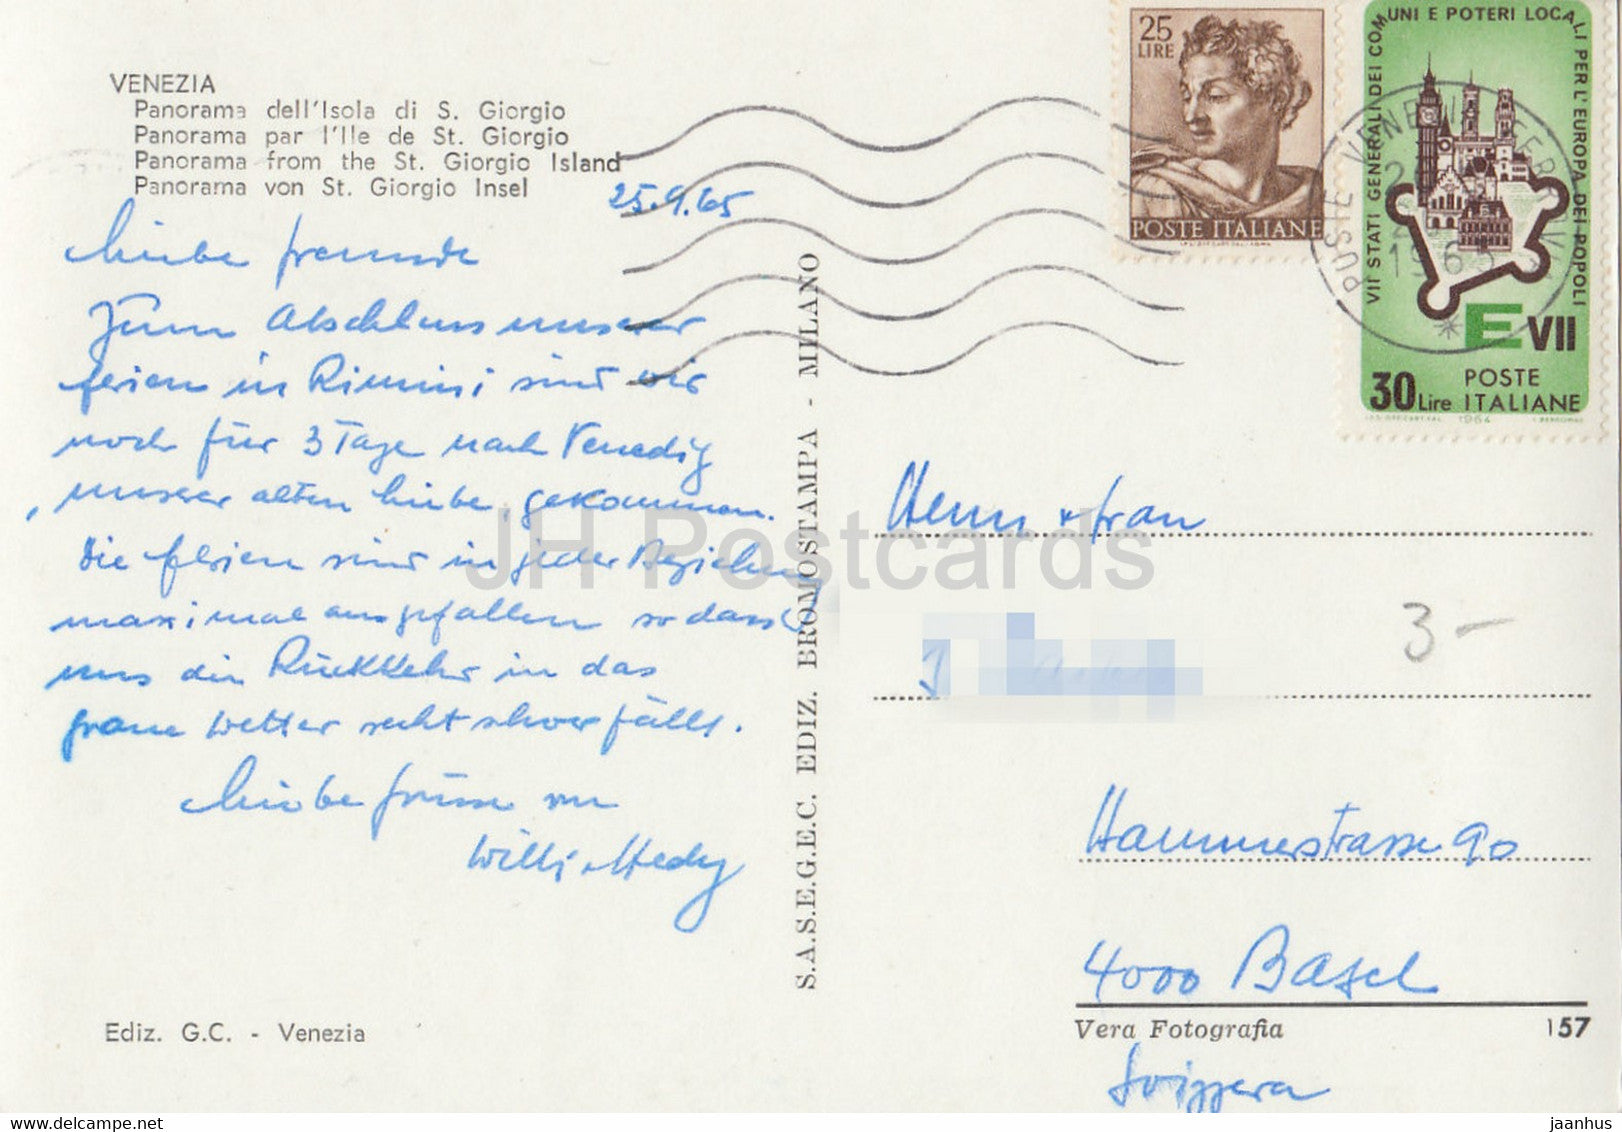 VENEZIA
Panorama dell'Isola di S. Giorgio
Panorama par l'Ile de St. Giorgio
Panorama from the St. Giorgio Island
Panorama von St. Giorgio Insel
25.9.65
Liebe Freunde
Zum Abschluss unserer
Ferien in Rimini sind wir
noch für 3 Tage nach Venedig
, unserer alten Liebe, gekommen.
Die Ferien sind in jeder Beziehung
maximal ausgefallen so dass
uns die Rückkehr in das
graue Wetter recht schwer fällt.
Liebe Grüsse von
Willi + Hedy
Ediz. G.C. - Venezia
S.A.S.E.G.E.C. EDIZ. BROMOSTAMPA - MILANO
25
LIRE
POSTE ITALIANE
VII STATI GENERALI DEI COMUNI E POTERI LOCALI PER L'EUROPA DEI POPOLI
E VII
30 Lire POSTE ITALIANE
1964
POSTE VENEZIA FERROVIA
1965
Herrn + Frau
3 –
Hammerstrasse 90
4000 Basel
Vera Fotografia
157
Svizzera
JH Postcards
delcampe.net
jaanhus